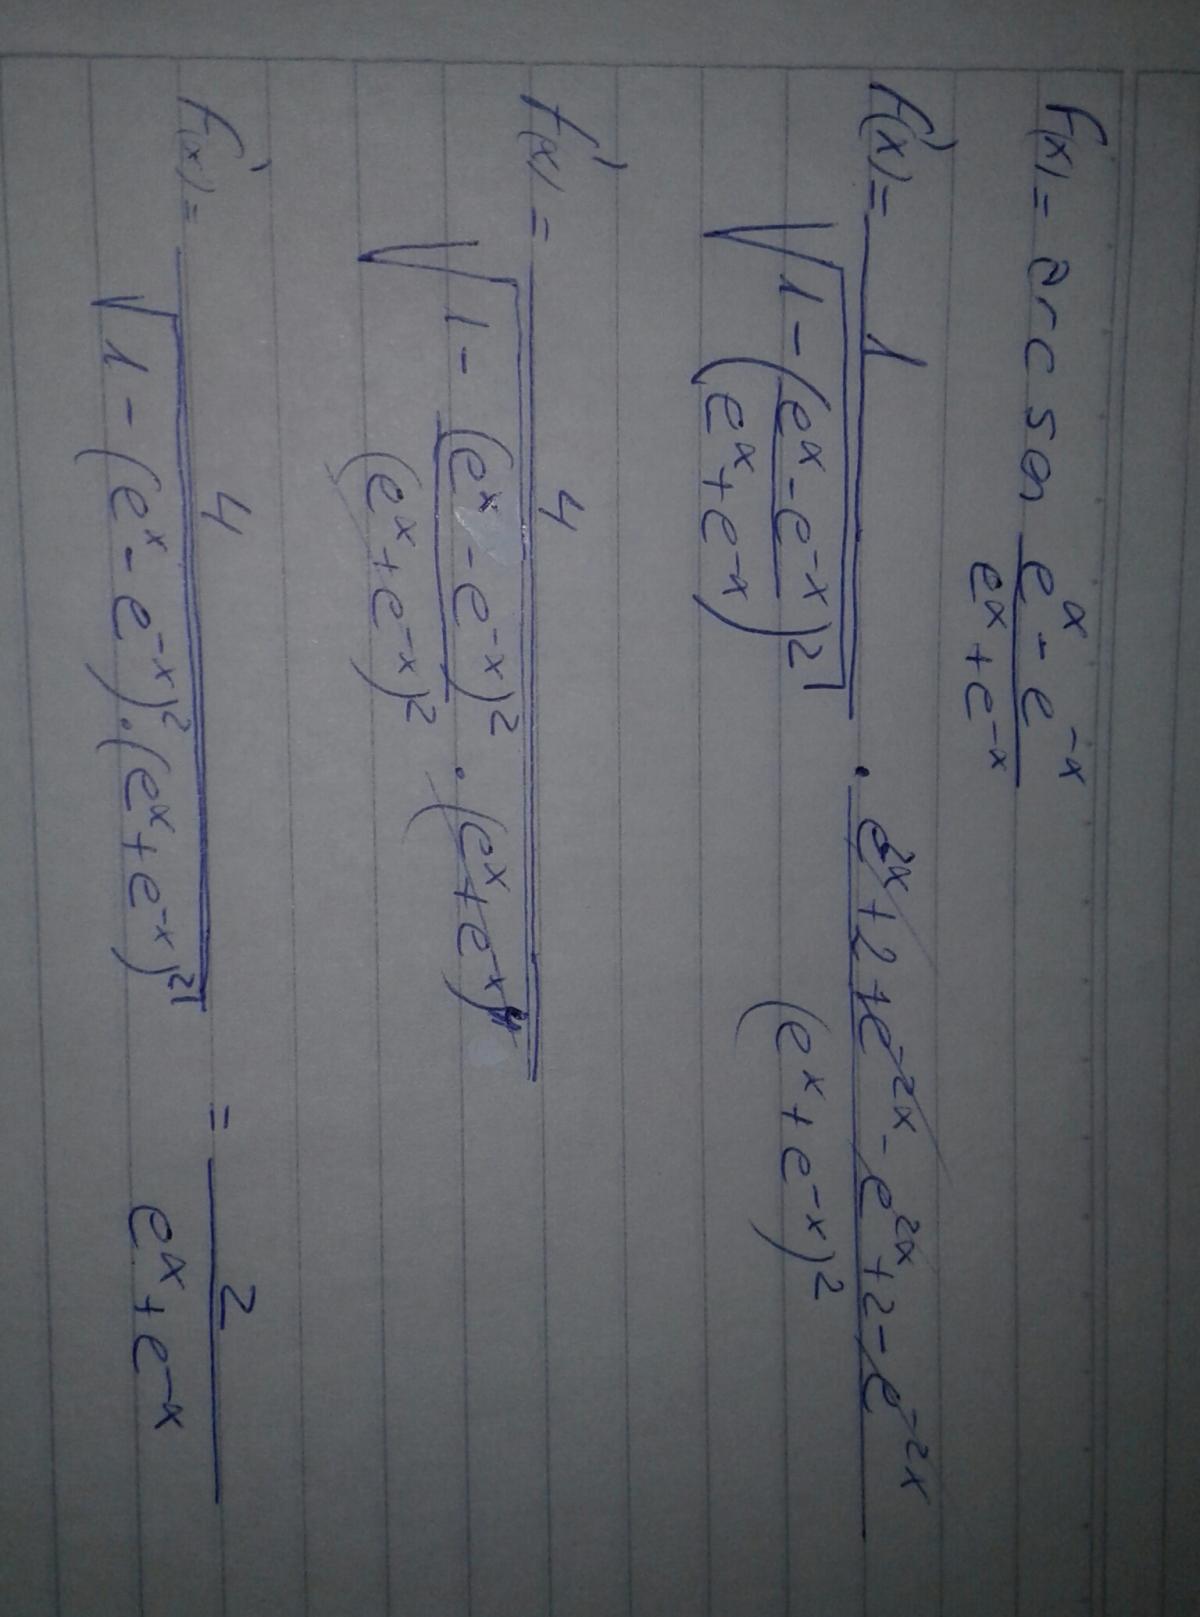 f(x) = arc sen (e^x - e^-x)/(e^x + e^-x)
f'(x) = 1/√(1 - ((e^x - e^-x)/(e^x + e^-x))^2) · (e^2x + 2 + e^-2x - e^2x + 2 - e^-2x)/(e^x + e^-x)^2
f'(x) = 4/√(1 - (e^x - e^-x)^2/(e^x + e^-x)^2 · (e^x + e^-x)^4)
f'(x) = 4/√(1 - (e^x - e^-x)^2 · (e^x + e^-x)^2) = 2/(e^x + e^-x)